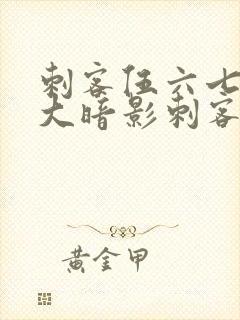 刺客伍六七
大暗影刺客
黄金甲